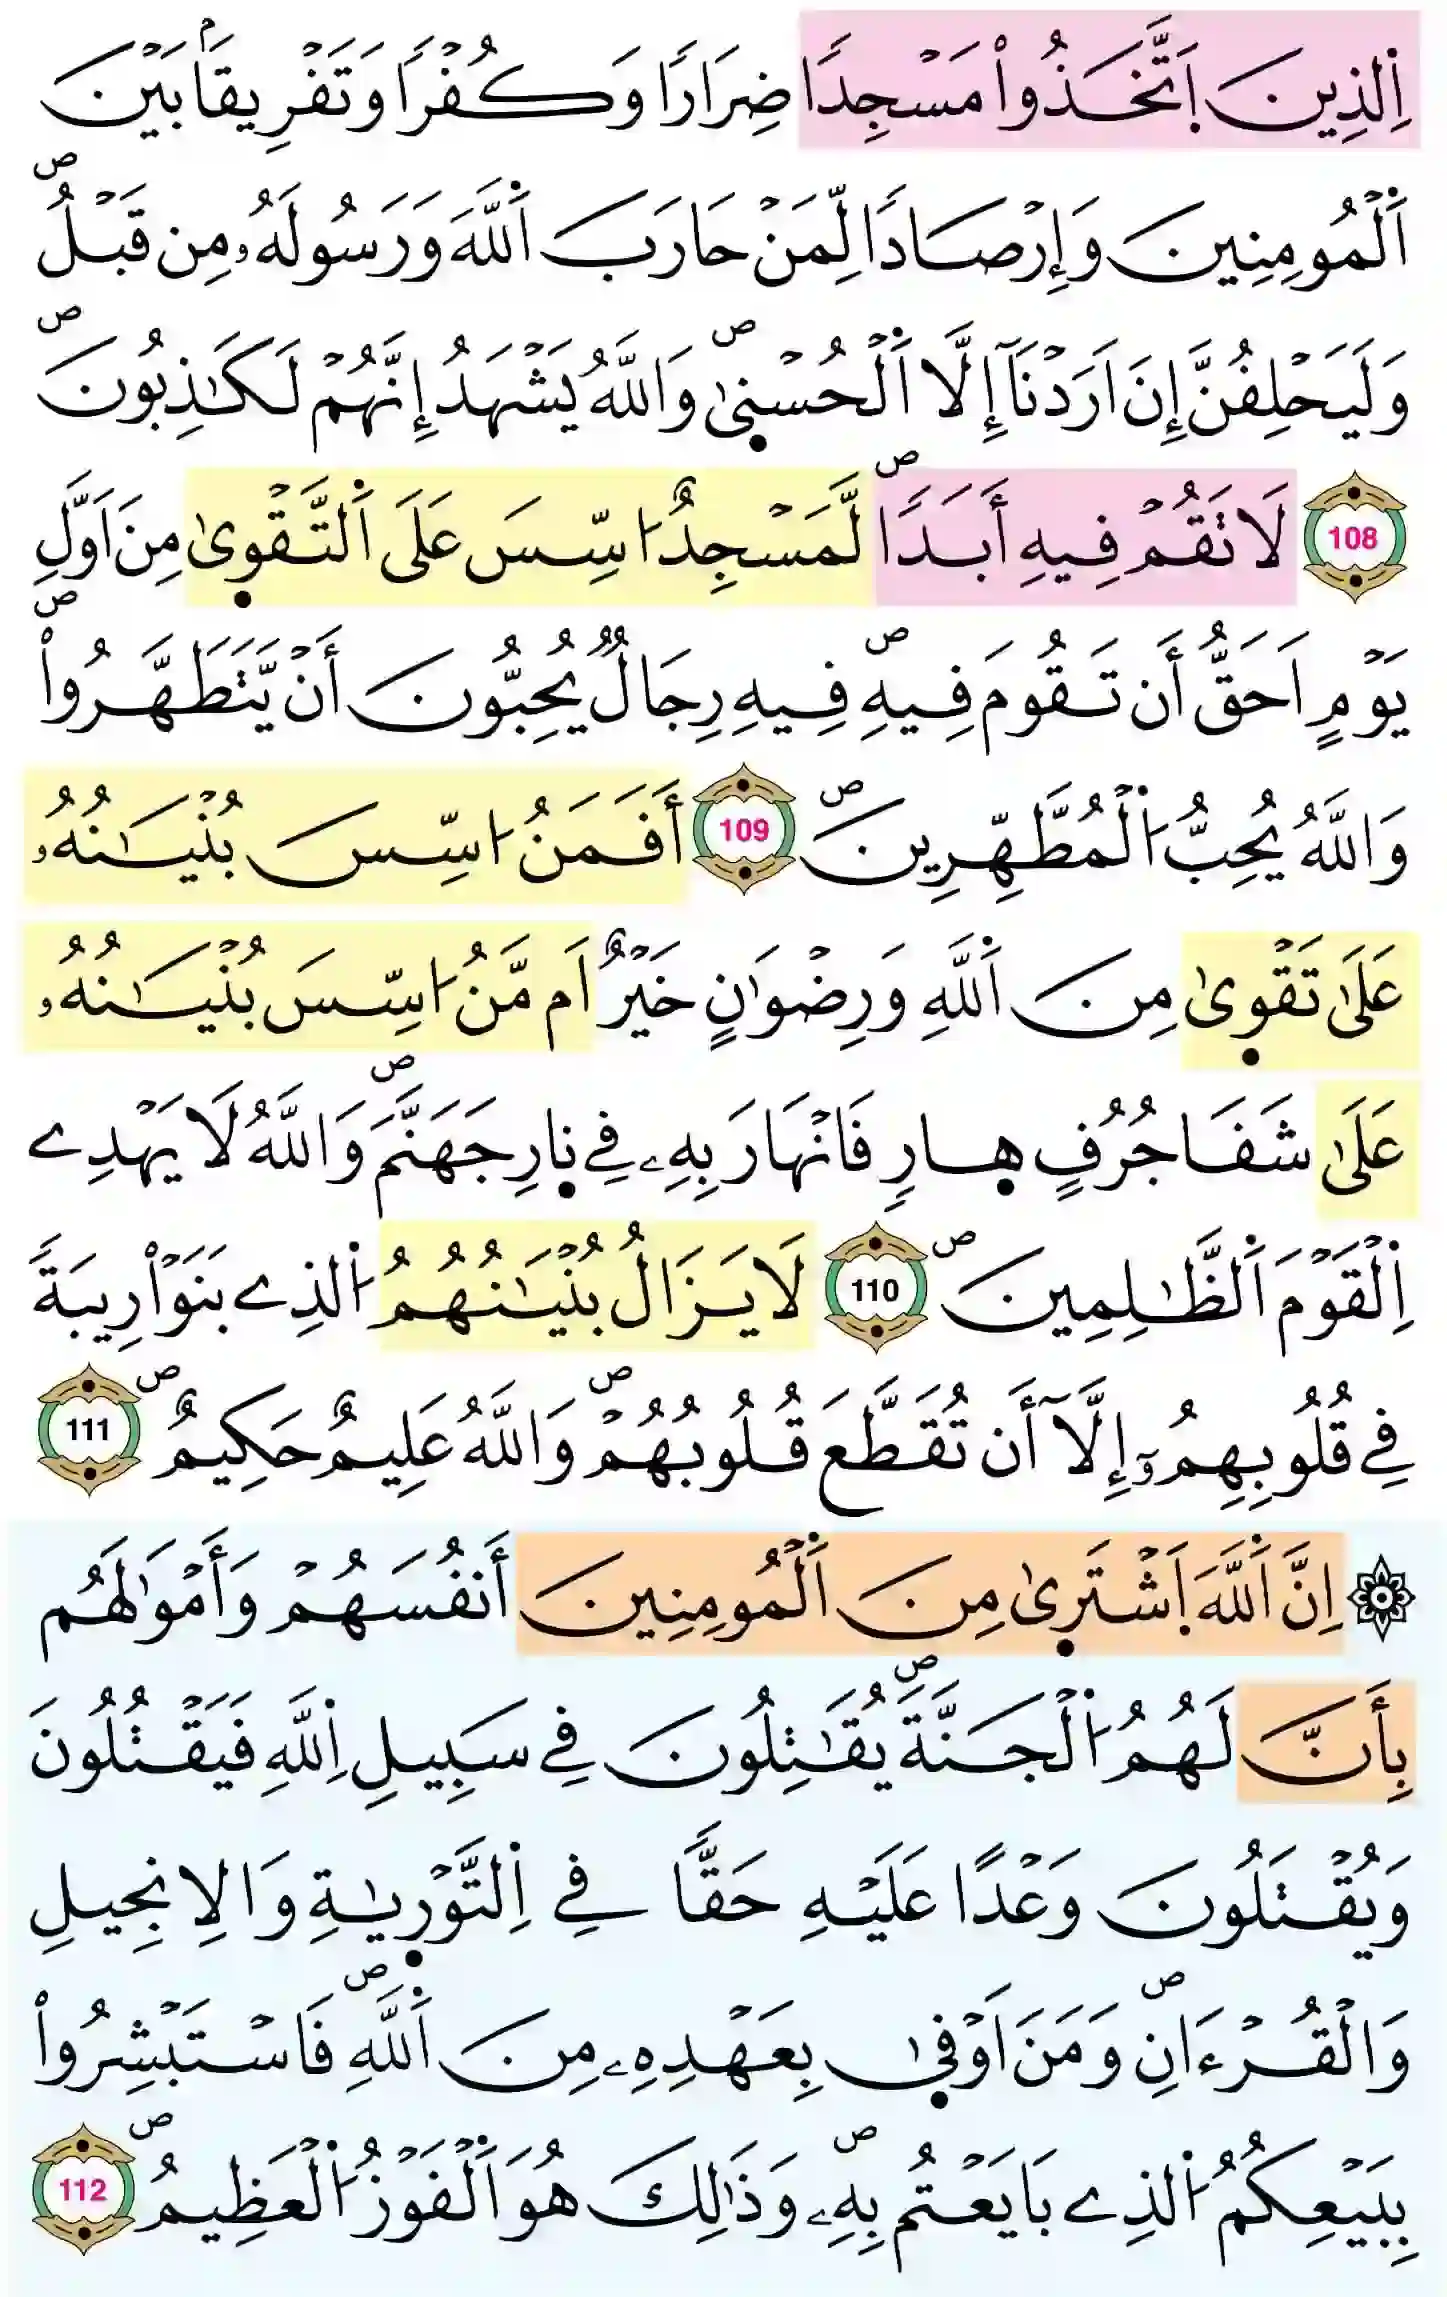 اِ۬لذِينَ اَ۪تَّخَذُواْ مَسْجِداٗ ضِرَاراٗ وَكُفْراٗ وَتَفْرِيقاَۢ بَيْنَ
اَ۬لْمُومِنِينَ وَإِرْصَاداٗ لِّمَنْ حَارَبَ اَ۬للَّهَ وَرَسُولَهُۥ مِن قَبْلُۖ
وَلَيَحْلِفُنَّ إِنَ اَرَدْنَآ إِلَّا اَ۬لْحُسْن۪ىٰۖ وَاللَّهُ يَشْهَدُ إِنَّهُمْ لَكَٰذِبُونَۖ
108 لَا تَقُمْ فِيهِ أَبَداٗۖ لَّمَسْجِدٌ ا۟سِّسَ عَلَى اَ۬لتَّقْو۪ىٰ مِنَ اَوَّلِ
يَوْمٍ اَحَقُّ أَن تَقُومَ فِيهِۖ فِيهِ رِجَالٞ يُحِبُّونَ أَنْ يَّتَطَهَّرُواْۖ
وَاللَّهُ يُحِبُّ اُ۬لْمُطَّهِّرِينَۖ 109 أَفَمَنُ ا۟سِّسَ بُنْيَٰنُهُۥ
عَلَىٰ تَقْو۪ىٰ مِنَ اَ۬للَّهِ وَرِضْوَٰنٍ خَيْرٌ اَم مَّنُ ا۟سِّسَ بُنْيَٰنُهُۥ
عَلَىٰ شَفَا جُرُفٍ ه۪ارٖ فَانْهَارَ بِهِۦ فِے ن۪ارِ جَهَنَّمَۖ وَاللَّهُ لَا يَهْدِے
اِ۬لْقَوْمَ اَ۬لظَّٰلِمِينَۖ 110 لَا يَزَالُ بُنْيَٰنُهُمُ اُ۬لذِے بَنَوْاْ رِيبَةٗ
فِے قُلُوبِهِمُۥٓ إِلَّآ أَن تُقَطَّعَ قُلُوبُهُمْۖ وَاللَّهُ عَلِيمٌ حَكِيمٌۖ 111
۞ اِنَّ اَ۬للَّهَ اَ۪شْتَر۪ىٰ مِنَ اَ۬لْمُومِنِينَ أَنفُسَهُمْ وَأَمْوَٰلَهُم
بِأَنَّ لَهُمُ اُ۬لْجَنَّةَۖ يُقَٰتِلُونَ فِے سَبِيلِ اِ۬للَّهِ فَيَقْتُلُونَ
وَيُقْتَلُونَ وَعْداً عَلَيْهِ حَقّاٗ فِے اِ۬لتَّوْر۪يٰةِ وَالِانجِيلِ
وَالْقُرْءَانِۖ وَمَنَ اَوْف۪ىٰ بِعَهْدِهِۦ مِنَ اَ۬للَّهِۖ فَاسْتَبْشِرُواْ
بِبَيْعِكُمُ اُ۬لذِے بَايَعْتُم بِهِۦۖ وَذَٰلِكَ هُوَ اَ۬لْفَوْزُ اُ۬لْعَظِيمُۖ 112